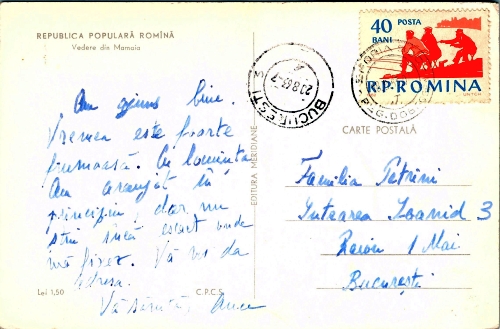 REPUBLICA POPULARĂ ROMÎNĂ
Vedere din Mamaia
Am ajuns bine.
Vremea este foarte
frumoasă. Cu locuința
Am aranjat în
principiu, dar nu
știu încă exact unde
mă fixez. Vă voi da
adresa.
Vă sărută,
Lei 1,50
C.P.C.S.
EDITURA MERIDIANE
BUCUREȘTI
40 POSTA
BANI
R.P.ROMINA
EFORIA
REG. DOB
CARTE POȘTALĂ
Familia Petrini
Intrarea Ioanid 3
Raion 1 Mai
București